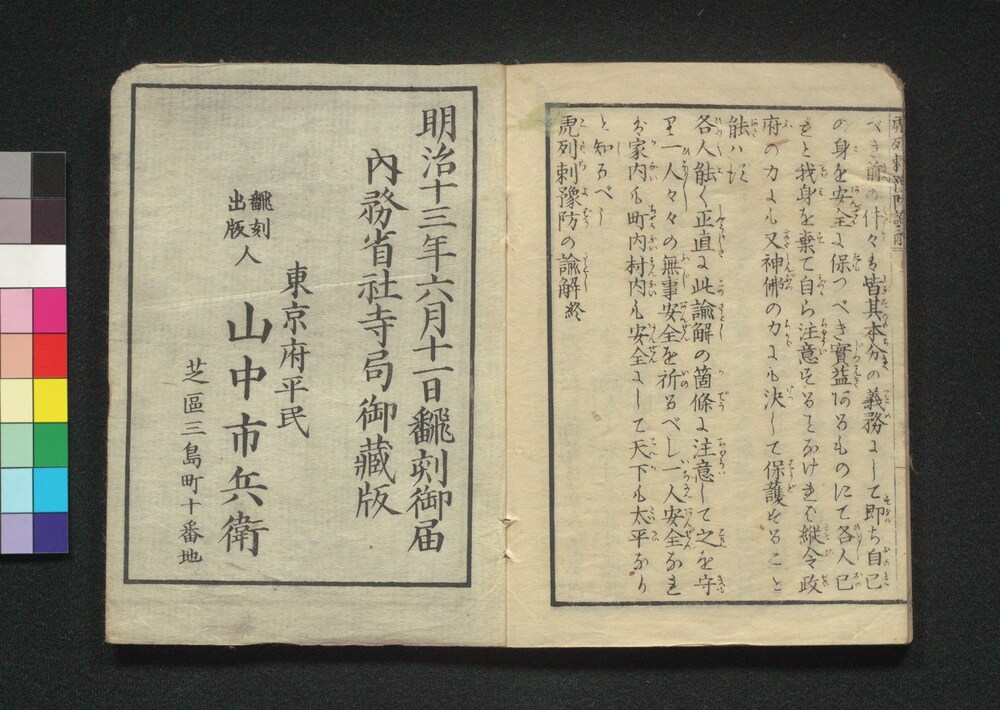 べき前の件々も皆其本分の義務にして即ち自己
の身を安全に保つべき實益あるものにて各人己
れと我身を棄て自ら注意することなければ縦令政
府の力にも又神佛の力にも決して保護すること
能ハず
各人能く正直に此諭解の箇條に注意して之を守
り一人々々の無事安全を祈るべし一人安全なれ
ば家内も町内村内も安全にして天下も太平なり
と知るべし
虎列剌豫防の諭解終
明治十三年六月十一日飜刻御届
內務省社寺局御藏版
飜刻
出版
人
東京府平民
山中市兵衛
芝區三島町十番地